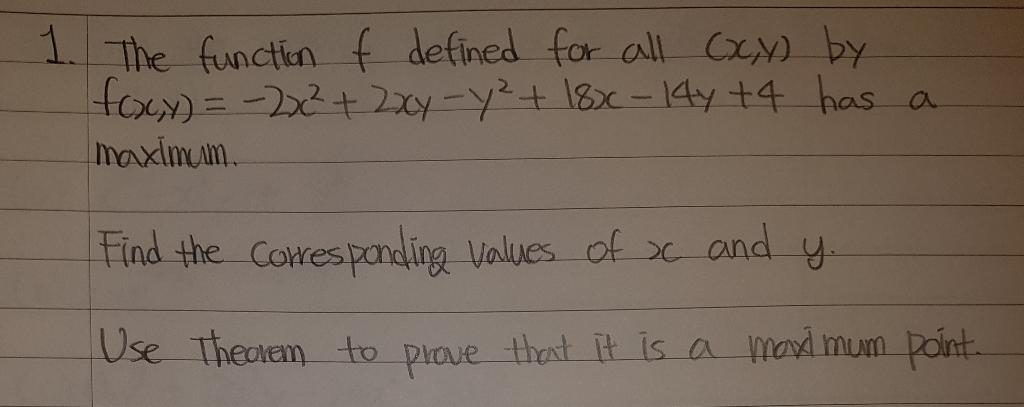 1. The function f defined for all (x,y) by
f(x,y) = -2x² + 2xy - y² + 18x - 14y + 4 has a
maximum.
Find the corresponding values of x and y.
Use Theorem to prove that it is a maximum point.